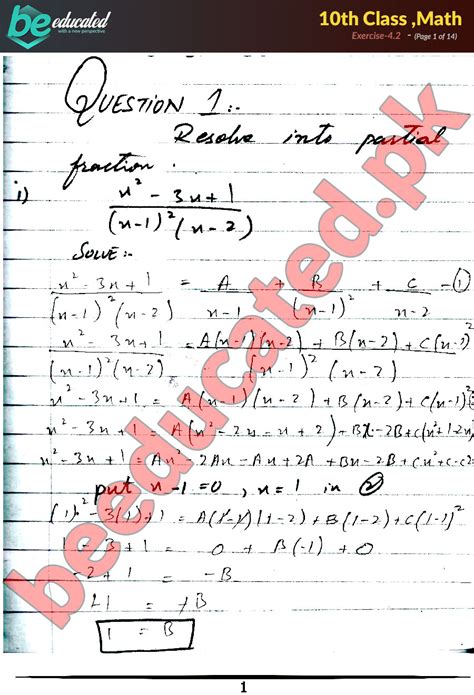 be educated
with a new perspective
10th Class ,Math
Exercise-4.2 - (Page 1 of 14)
QUESTION 1:-
Resolve into partial
fraction.
i) x² - 3x + 1
(x-1)²(x-2)
SOLVE:-
x² - 3x + 1 = A + B + C -①
(x-1)²(x-2) x-1 (x-1)² x-2
x² - 3x + 1 = A(x-1)(x-2) + B(x-2) + C(x-1)²
(x-1)²(x-2) (x-1)² (x-2)
x² - 3x + 1 = A(x-1)(x-2) + B(x-2) + C(x-1)²
x² - 3x + 1 = A(x² - 2x - x + 2) + Bx - 2B + C(x²+1-2x)
x² - 3x + 1 = Ax² - 2Ax - Ax + 2A + Bx - 2B + Cx² + C - 2
put x-1=0 , x=1 in ②
(1)² - 3(1) + 1 = A(1-1)(1-2) + B(1-2) + C(1-1)²
1 - 3 + 1 = 0 + B(-1) + 0
-2 + 1 = -B
+1 = +B
1 = B
beeducated.pk
1